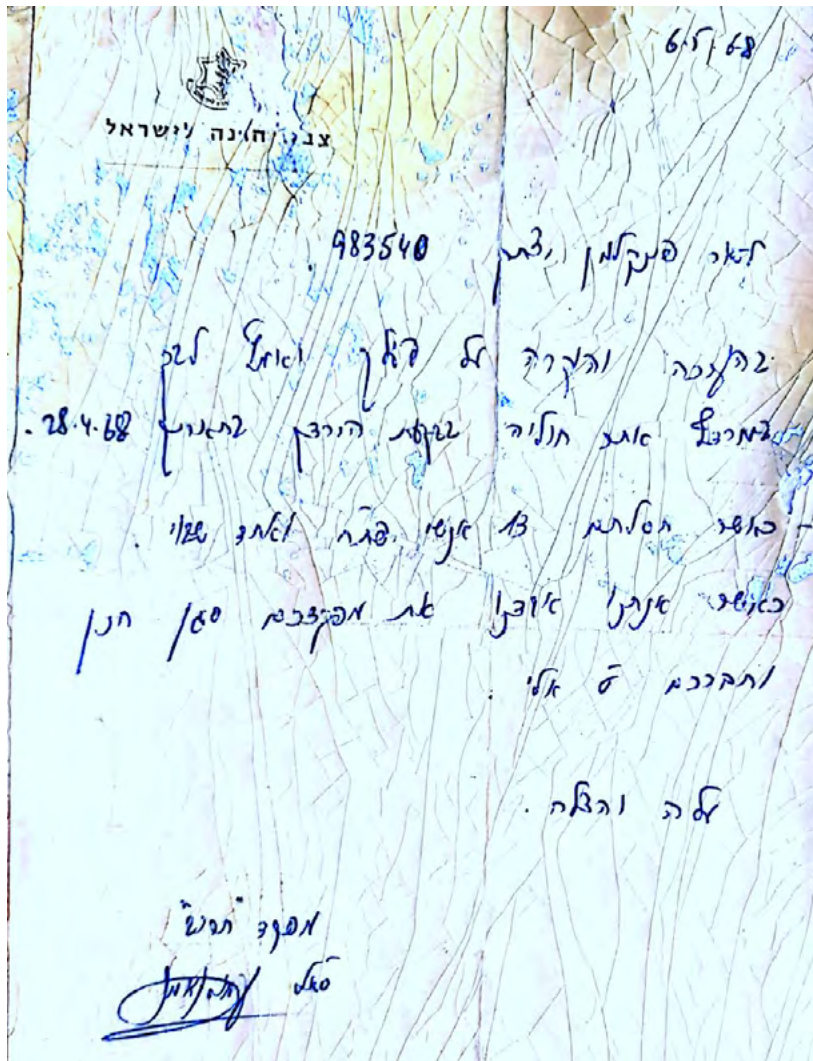 6.5.68
צבא הגנה לישראל
לטור פינקלמן יצחק 983540.
בהערכה והוקרה על פועלך ואומץ לבך
במרדף אחר חוליה בבקעת הירדן בתאריך 28.4.68.
- כאשר חסלתם 13 אנשי פתח ואחד שבוי.
כאשר אנחנו איבדנו את מפקדכם סגן חנן
וחברכם ט אלי.
עלה והצלח.
מפקד "חרוב"
סאל